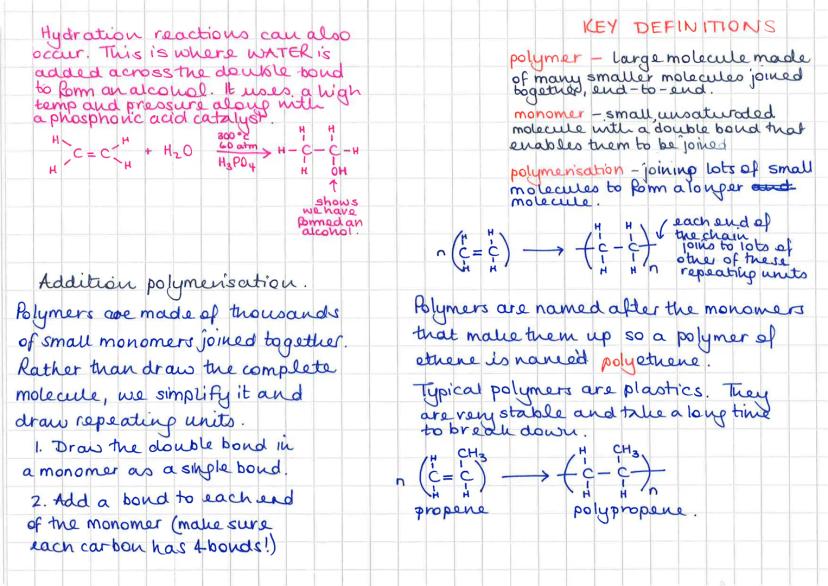 Hydration reactions can also
occur. This is where WATER is
added across the double bond
to form an alcohol. It uses a high
temp and pressure along with
a phosphoric acid catalyst.
H H
C = C
H H
+ H₂O
300°C
60 atm
H₃PO₄
H H
H - C - C - H
H OH
shows
we have
formed an
alcohol.
Addition polymerisation.
Polymers are made of thousands
of small monomers joined together.
Rather than draw the complete
molecule, we simplify it and
draw repeating units.
1. Draw the double bond in
a monomer as a single bond.
2. Add a bond to each end
of the monomer (make sure
each carbon has 4 bonds!)
KEY DEFINITIONS
polymer - large molecule made
of many smaller molecules joined
together, end-to-end.
monomer - small, unsaturated
molecule with a double bond that
enables them to be joined
polymerisation - joining lots of small
molecules to form a longer
molecule.
H H
n ( C = C )
H H
H H
( C - C ) n
H H
each end of
the chain
joins to lots of
other of these
repeating units
Polymers are named after the monomers
that make them up so a polymer of
ethene is named polyethene.
Typical polymers are plastics. They
are very stable and take a long time
to break down.
H CH₃
n ( C = C )
H H
propene
H CH₃
( C - C ) n
H H
polypropene.